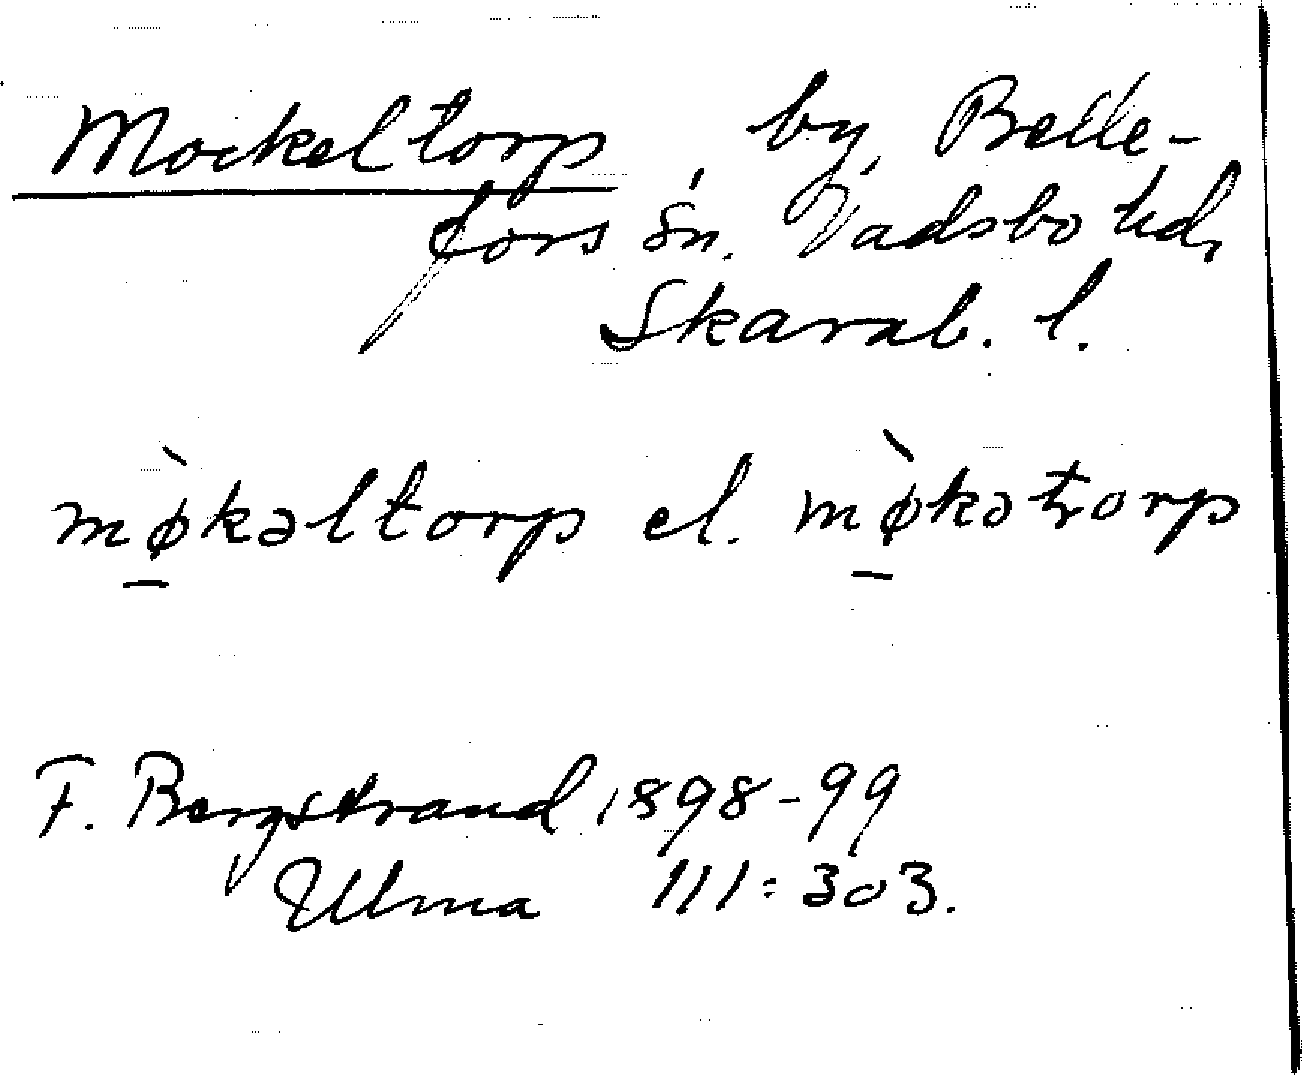 Mockeltorp, by, Belle-
fors sn. Vadsbo hd,
Skarab. l.
mø̀kəltorp el. mø̀kətorp
F. Bergstrand 1898-99
Ulma 111:303.